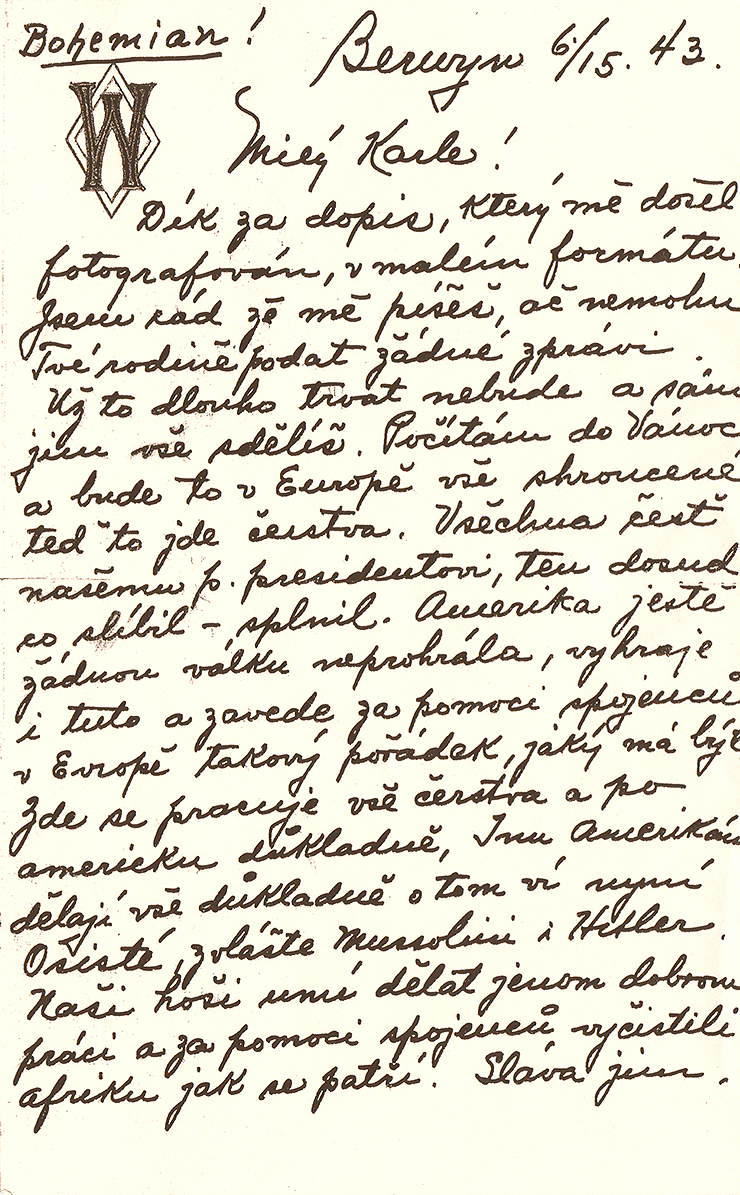 Bohemian!
Berwyn 6/15. 43.
W
Milý Karle!
Dík za dopis, který mě došel
fotografován, v malém formátu.
Jsem rád žě mě píšěš, ač nemohu
Tvé rodině podat žádné zprávi.
Už to dlouho trvat nebude a sám
jim vše sdělíš. Počítám do Vánoc
a bude to v Europě vše shroucené
teď to jde čerstva. Všěchna čest
našěmu p. presidentovi, ten dosud
co slíbil – splnil. Amerika jestě
žádnou válku neprohrála, vyhraje
i tuto a zavede za pomoci spojenců
v Evropě takový pořádek, jaký má být
Zde se pracuje vše čerstva a po
americku důkladně, Inu Amerikáni
dělají vše důkladně o tom ví nyní
Ošisté, zvláště Mussolini i Hitler.
Naši hoši umí dělat jenom dobrou
práci a za pomoci spojenců vyčistili
afriku jak se patří. Sláva jim.